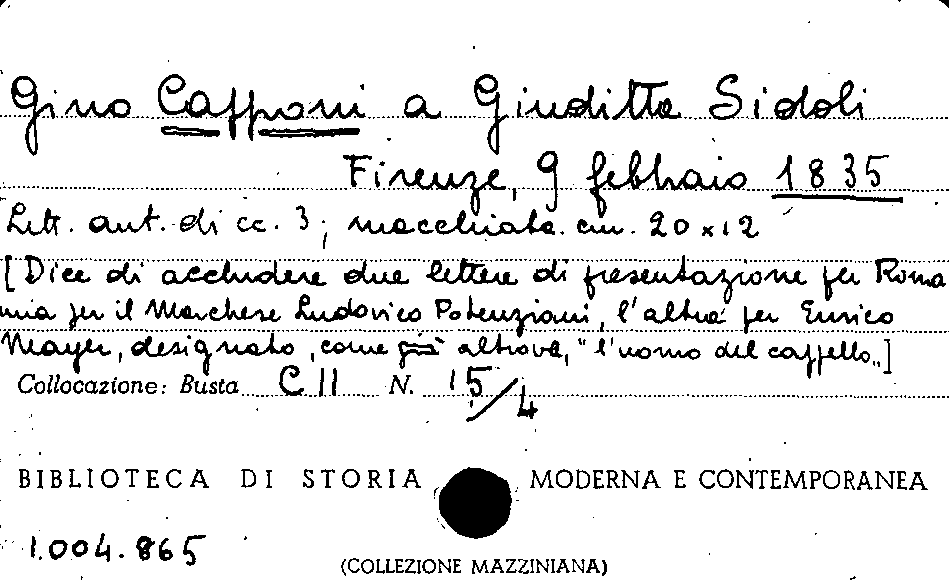 Gino Capponi a Giuditta Sidoli
Firenze, 9 febbraio 1835
Lett. aut. di cc. 3, macchiata. cm. 20 x 12
[Dice di accludere due lettere di presentazione per Roma
una per il Marchese Ludovico Potenziani, l'altra per Enrico
Mayer, designato, come già altrove, "l'uomo del cappello„]
Collocazione: Busta C II N. 15/4
BIBLIOTECA DI STORIA MODERNA E CONTEMPORANEA
1.004.865
(COLLEZIONE MAZZINIANA)